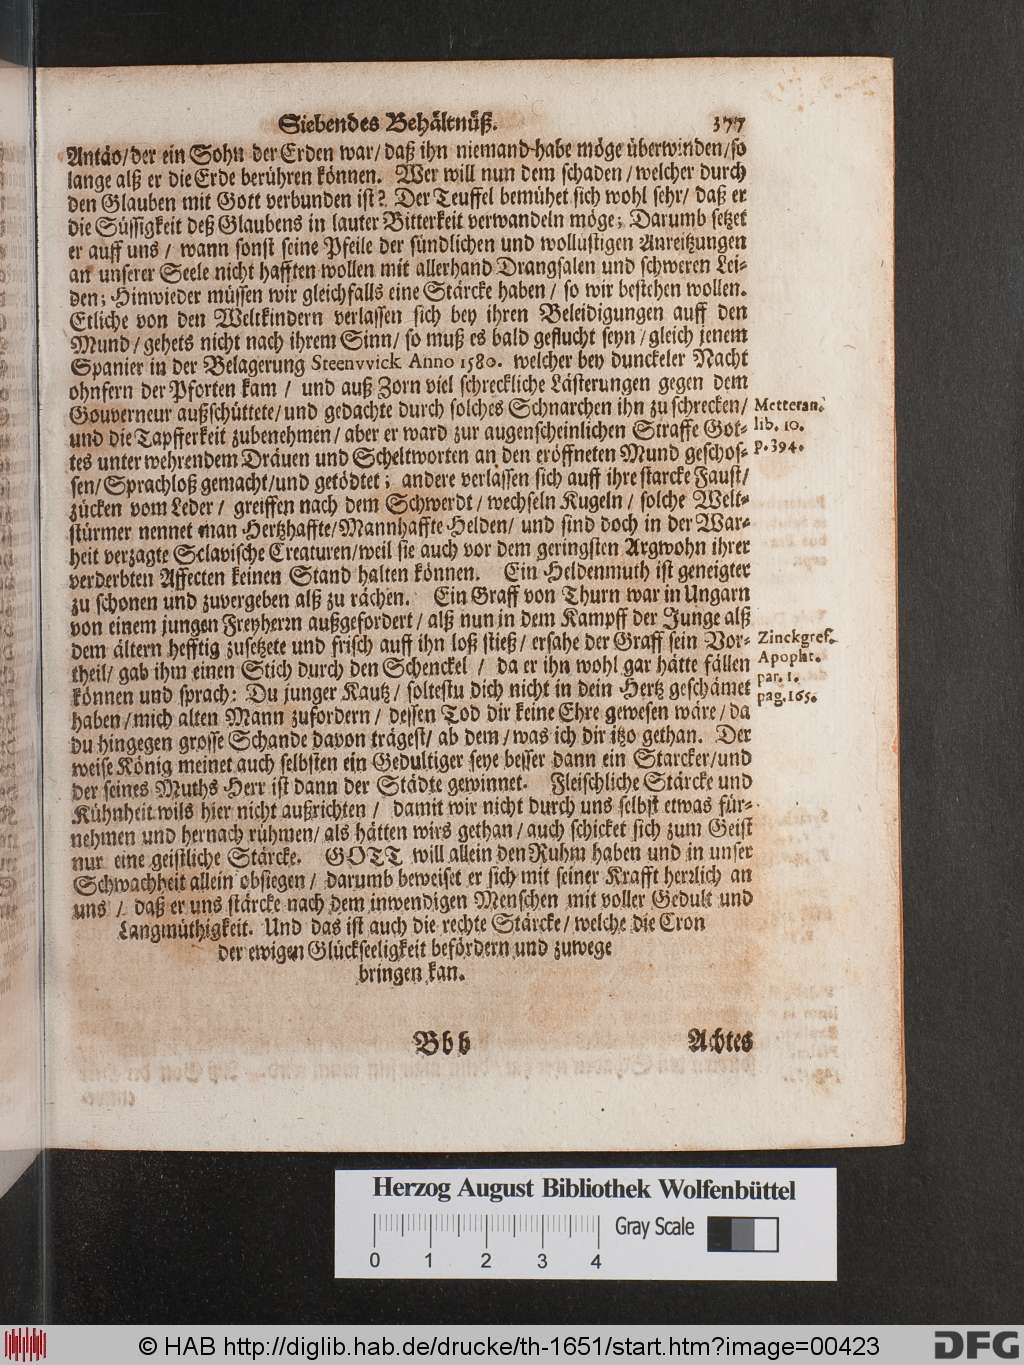 Siebendes Behältnüß. 377
Antäo/der ein Sohn der Erden war/ daß ihn niemand habe möge überwinden/so
lange alß er die Erde berühren können. Wer will nun dem schaden/ welcher durch
den Glauben mit Gott verbunden ist? Der Teuffel bemühet sich wohl sehr/ daß er
die Süssigkeit deß Glaubens in lauter Bitterkeit verwandeln möge; Darumb setzet
er auff uns / wann sonst seine Pfeile der sündlichen und wollustigen Anreitzungen
an unserer Seele nicht hafften wollen mit allerhand Drangsalen und schweren Lei-
den; Hinwieder müssen wir gleichfalls eine Stärcke haben / so wir bestehen wollen.
Etliche von den Weltkindern verlassen sich bey ihren Beleidigungen auff den
Mund/ gehets nicht nach ihrem Sinn/ so muß es bald geflucht seyn / gleich jenem
Spanier in der Belagerung Steenvvick Anno 1580. welcher bey dunckeler Nacht
ohnfern der Pforten kam / und auß Zorn viel schreckliche Lästerungen gegen dem
Gouverneur außschüttete/ und gedachte durch solches Schnarchen ihn zu schrecken/
und die Tapfferkeit zubenehmen / aber er ward zur augenscheinlichen Straffe Got-
tes unter wehrendem Dräuen und Scheltworten an den eröffneten Mund geschos-
sen/ Sprachloß gemacht/und getödtet; andere verlassen sich auff ihre starcke Faust/
zücken vom Leder / greiffen nach dem Schwerdt / wechseln Kugeln / solche Welt-
stürmer nennet man Hertzhaffte/ Mannhaffte Helden/ und sind doch in der War-
heit verzagte Sclavische Creaturen/ weil sie auch vor dem geringsten Argwohn ihrer
verderbten Affecten keinen Stand halten können. Ein Heldenmuth ist geneigter
zu schonen und zuvergeben alß zu rächen. Ein Graff von Thurn war in Ungarn
von einem jungen Freyherrn außgefordert / alß nun in dem Kampff der Junge alß
dem ältern hefftig zusetzete und frisch auff ihn loß stieß / ersahe der Graff sein Vor-
theil/ gab ihm einen Stich durch den Schenckel / da er ihn wohl gar hätte fällen
können und sprach: Du junger Kautz / soltestu dich nicht in dein Hertz geschämet
haben / mich alten Mann zufordern / dessen Tod dir keine Ehre gewesen wäre / da
du hingegen grosse Schande davon trägest/ ab dem / was ich dir itzo gethan. Der
weise König meinet auch selbsten ein Gedultiger seye besser dann ein Starcker/und
der seines Muths Herr ist dann der Städte gewinnet. Fleischliche Stärcke und
Kühnheit wils hier nicht außrichten / damit wir nicht durch uns selbst etwas für-
nehmen und hernach rühmen/ als hätten wirs gethan / auch schicket sich zum Geist
nur eine geistliche Stärcke. GOTT will allein den Ruhm haben und in unser
Schwachheit allein obsiegen / darumb beweiset er sich mit seiner Krafft herzlich an
uns / daß er uns stärcke nach dem inwendigen Menschen mit voller Gedult und
Langmüthigkeit. Und das ist auch die rechte Stärcke/ welche die Cron
der ewigen Glückseeligkeit befördern und zuwege
bringen kan.
Metteran.
lib. 10.
p. 394.
Zinckgref.
Apopht.
par. 1.
pag. 165.
Bbb Achtes
Herzog August Bibliothek Wolfenbüttel
Gray Scale
0 1 2 3 4
© HAB http://diglib.hab.de/drucke/th-1651/start.htm?image=00423
DFG